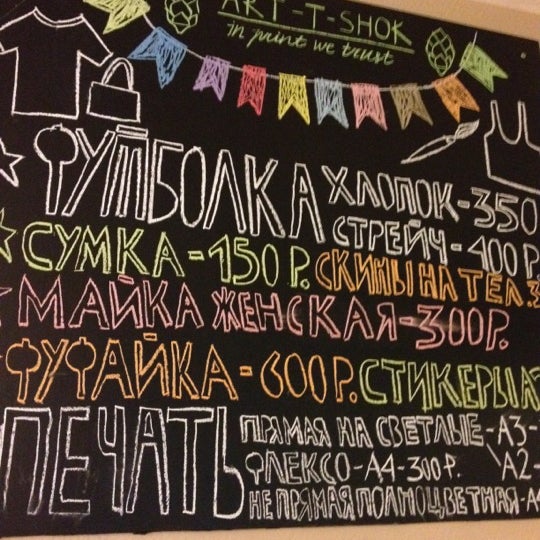 ART-T-SHOK
in print we trust
ФУТБОЛКА ХЛОПОК-350
СТРЕЙЧ-400Р.
СУМКА-150Р. СКИНЫ НА ТЕЛ.
МАЙКА ЖЕНСКАЯ-300Р.
ФУФАЙКА-600Р. СТИКЕРЫ
ПЕЧАТЬ ПРЯМАЯ НА СВЕТЛЫЕ-А3-
ФЛЕКСО-А4-300Р. \А2-
НЕ ПРЯМАЯ ПОЛНОЦВЕТНАЯ-